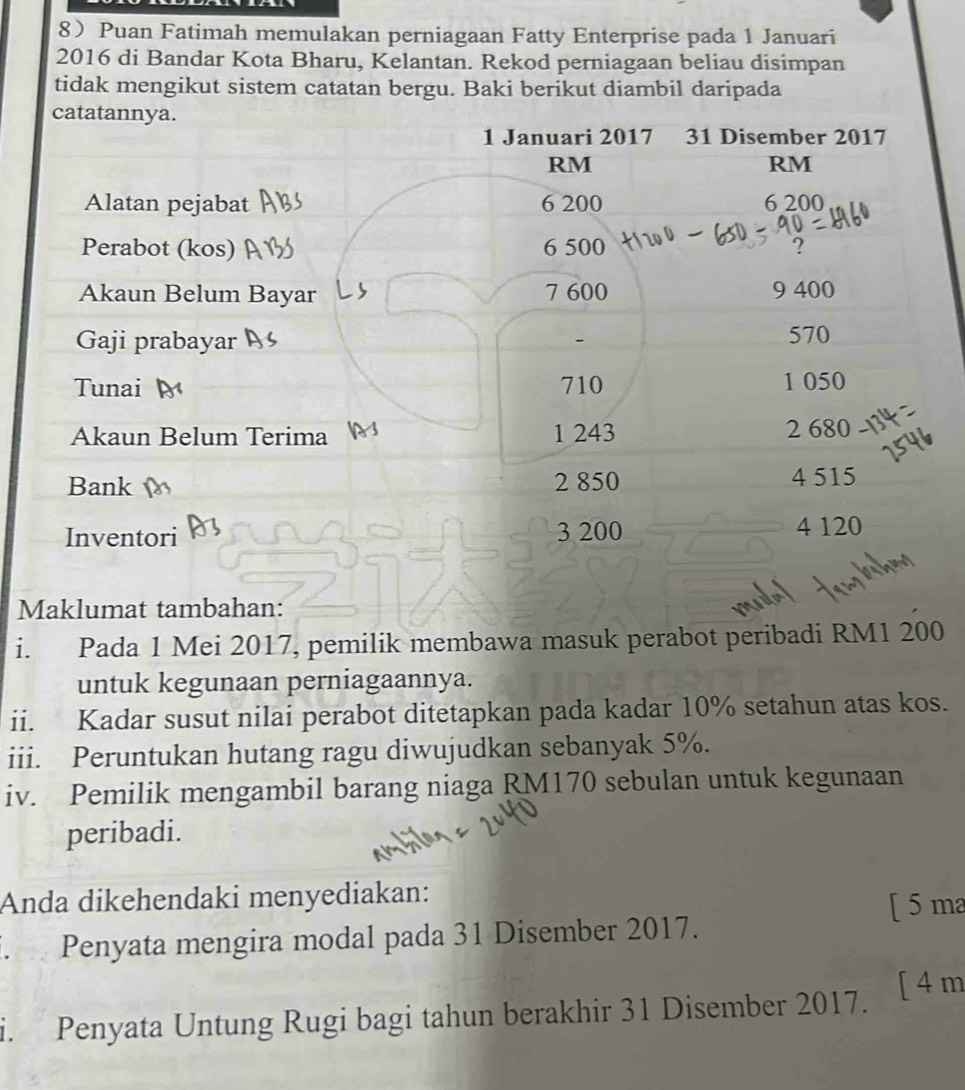 8) Puan Fatimah memulakan perniagaan Fatty Enterprise pada 1 Januari
2016 di Bandar Kota Bharu, Kelantan. Rekod perniagaan beliau disimpan
tidak mengikut sistem catatan bergu. Baki berikut diambil daripada
catatannya.
1 Januari 2017 31 Disember 2017
RM RM
Alatan pejabat ABS 6 200 6 200
Perabot (kos) ABS 6 500 +1200 - 650 - 90 = ?
Akaun Belum Bayar LS 7 600 9 400
Gaji prabayar AS - 570
Tunai As 710 1 050
Akaun Belum Terima AS 1 243 2 680 -134 = 2546
Bank As 2 850 4 515
Inventori AS 3 200 4 120
modal tambahan
Maklumat tambahan:
i. Pada 1 Mei 2017, pemilik membawa masuk perabot peribadi RM1 200
untuk kegunaan perniagaannya.
ii. Kadar susut nilai perabot ditetapkan pada kadar 10% setahun atas kos.
iii. Peruntukan hutang ragu diwujudkan sebanyak 5%.
iv. Pemilik mengambil barang niaga RM170 sebulan untuk kegunaan
peribadi.
ambilan = 2040
Anda dikehendaki menyediakan:
[ 5 ma
. Penyata mengira modal pada 31 Disember 2017.
[ 4 m
i. Penyata Untung Rugi bagi tahun berakhir 31 Disember 2017.